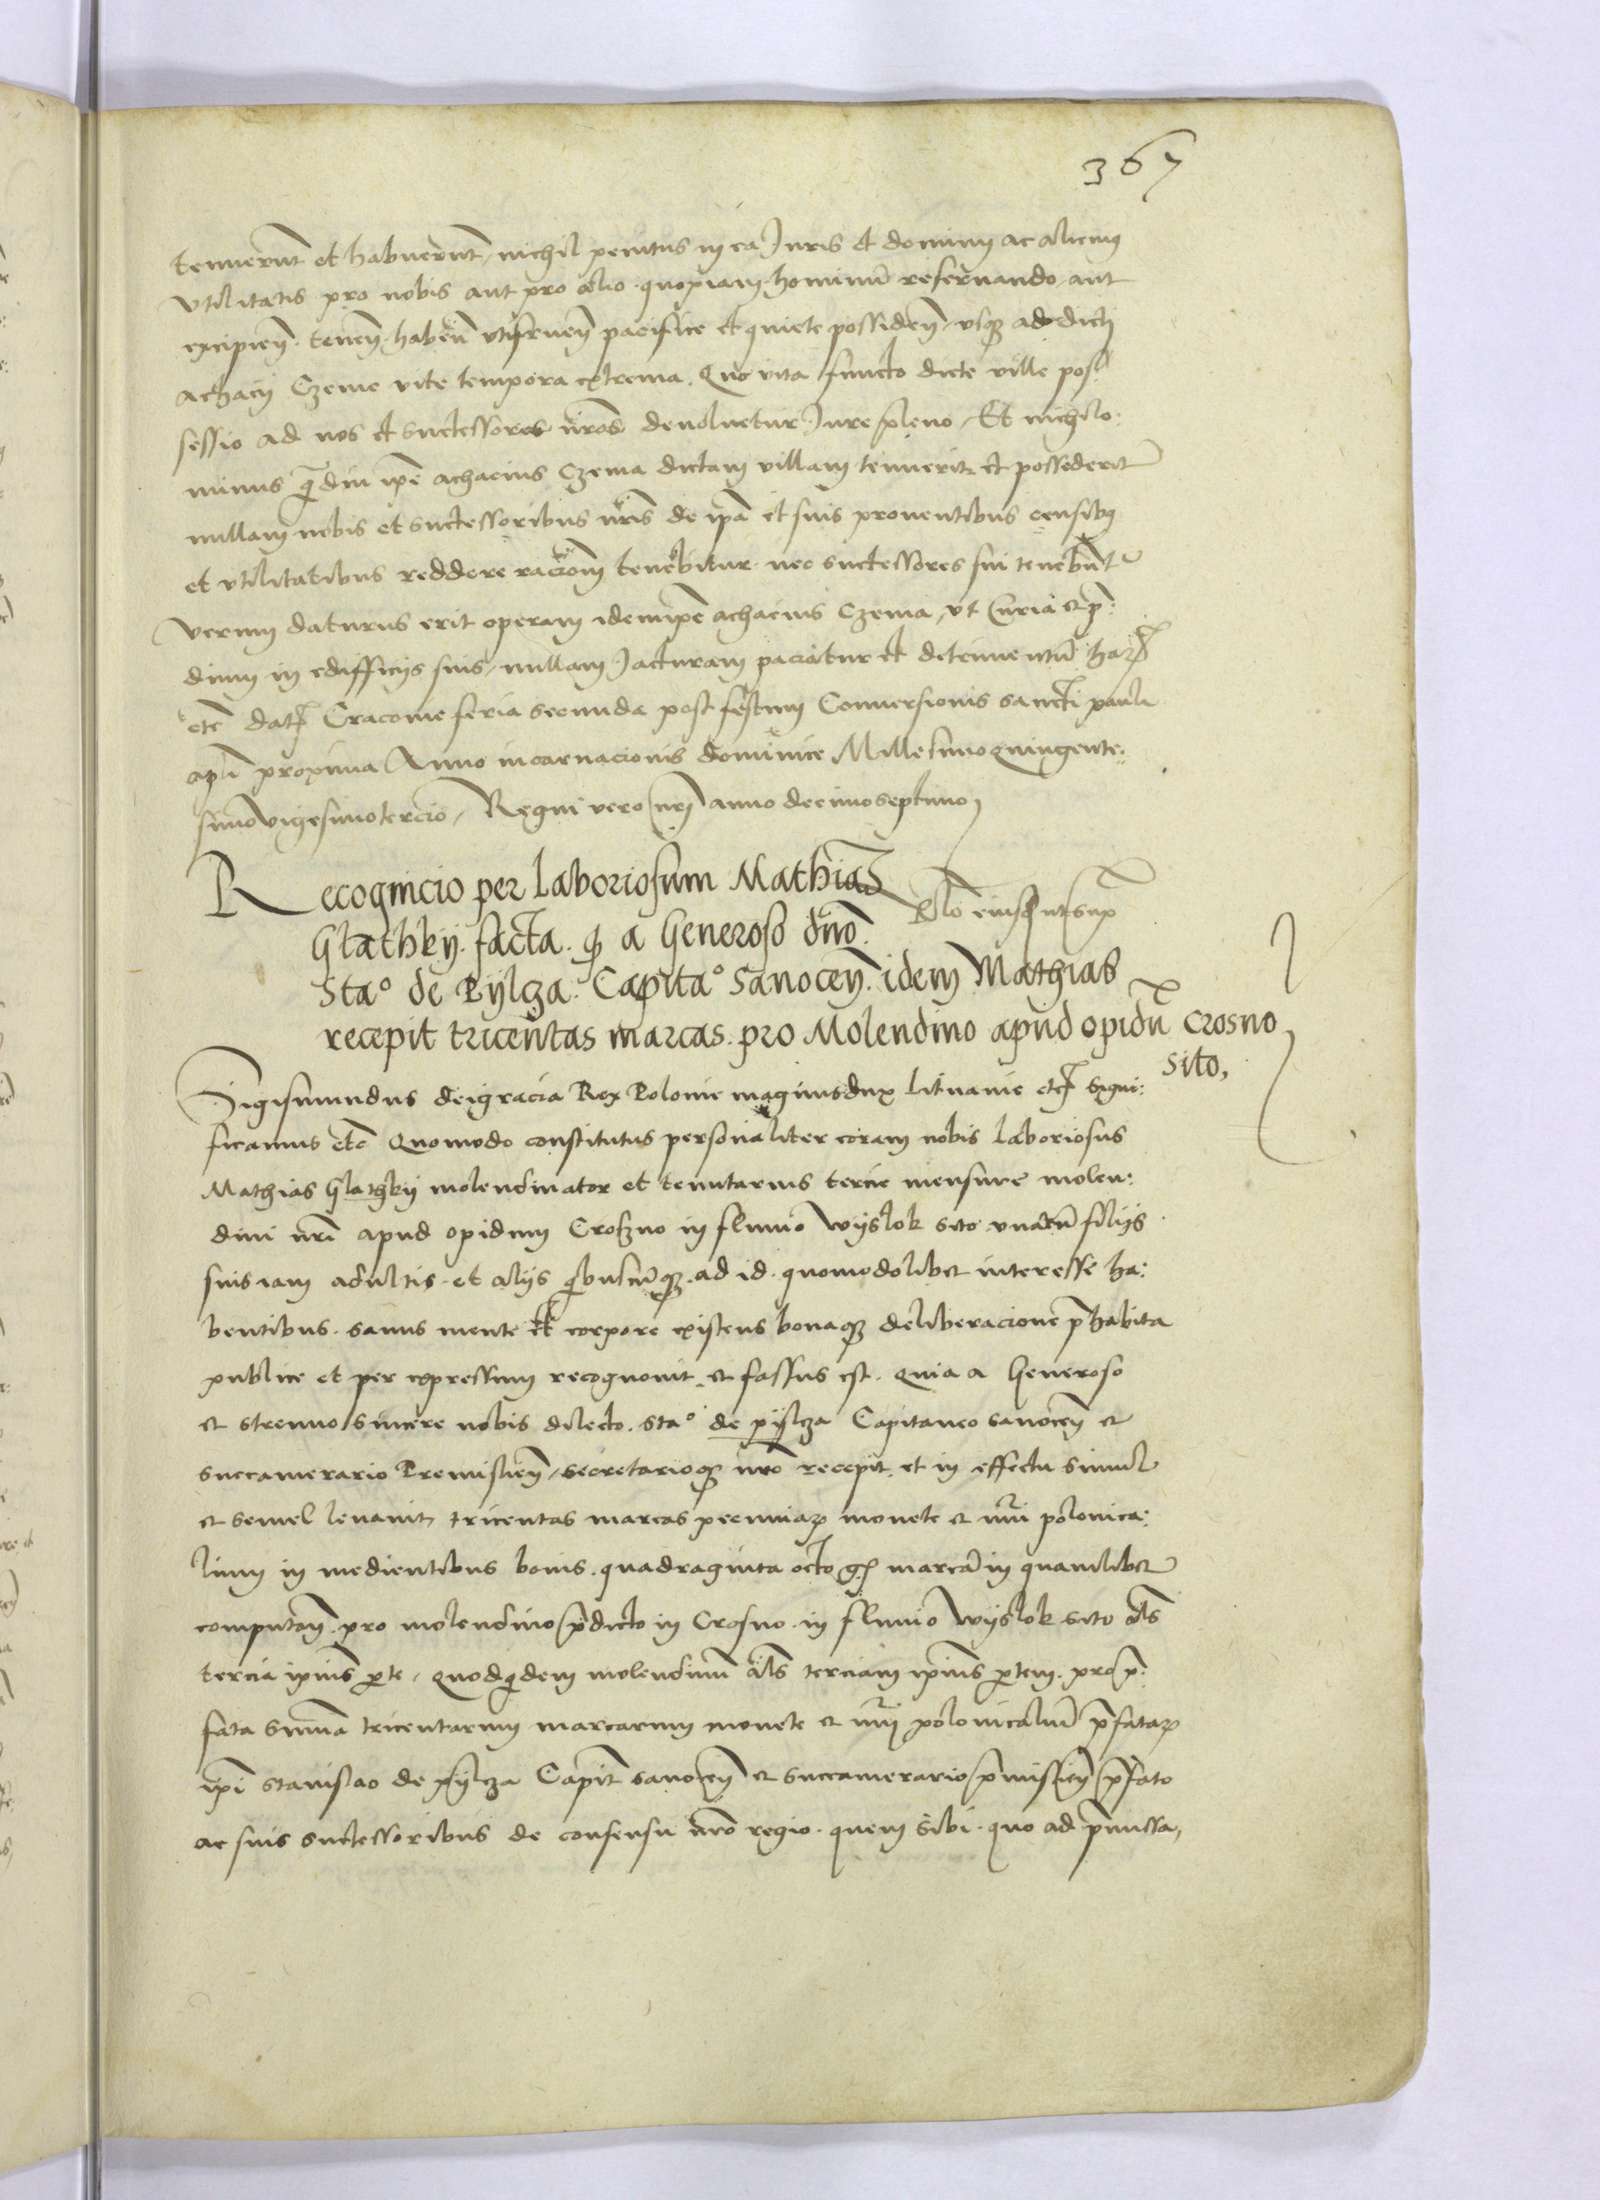 367
tenuerunt et habuerunt, nichil penitus in ea Juris et dominij ac alicuius
vtilitatis pro nobis aut pro alio quopiam hominum reseruando aut
excipien. tenen. haben utifruen pacifice et quiete possiden, vsque ad dicti
achacij Czeme vite tempora extrema. Quo vita functo dicte ville pos
sessio ad nos et successores nros deuoluetur Jure pleno, Et nichilo
minus qdiu ipe achacius Czema dictam villam tenuerit et possederit
nullam nobis et successoribus nris de ipa et suis prouentibus censibus
et vtilitatibus reddere racionem tenebitur nec successores sui tenebunt
verum daturus erit operam idem ipe achacius Czema, vt Curia et p:
dium in edifficijs suis, nullam Jacturam paciatur et detrimentum har
etc dat Cracouie feria secunda post festum Conuersionis sancti pauli
apli proxima Anno incarnacionis dominice Millesimoquingente:
simovigesimotercio, Regni vero nri anno decimoseptimo
Recognicio per Laboriosum Mathiam
Glathky. facta. q a Generoso dno.
Rlo eiusd ut sup
Stao de Pylcza. Capitao Sanocen. idem Mathias
recepit tricentas marcas. pro Molendino apud opidum Crosno
sito,
Sigismundus deigracia Rex Polonie magnusdux Lituanie etc Signi:
ficamus etc Quomodo constitutus personaliter coram nobis Laboriosus
Mathias Glathky molendinator et tenutarius tercie mensure molen:
dini nri apud opidum Croszno in fluuio Wyslok sito vnacum filijs
suis iam adultis et alijs qbuscumque ad id quomodolibet interesse ha:
bentibus. sanus mente et corpore existens bonaque deliberacione phabita
publice et per expressum recognouit et fassus est. Quia a Generoso
et strenuo sincere nobis dilecto. Stao de pylcza Capitaneo sanocen et
succamerario Premislien, secretarioque nro recepit et in effectu simul
et semel leuauit tricentas marcas pecuniarum monete et nui polonica:
lium in medientibus bonis. quadraginta octo gr marcam in quamlibet
computan. pro molendino pdicto in Crosno in fluuio Wyslok sito als
tercia ipius pte, quodqdem molendinum als terciam ipius ptem pro p:
fata summa tricentarum marcarum monete et nui polonicalium pfatarum
ipi Stanislao de pylcza Capit sanocen et succamerario pmislien pfato
ac suis successoribus de consensu nro regio. quem sibi quo ad pmissa,